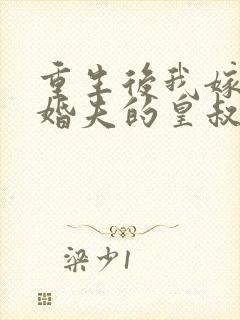 重生後我嫁
婚夫的皇叔
梁少1